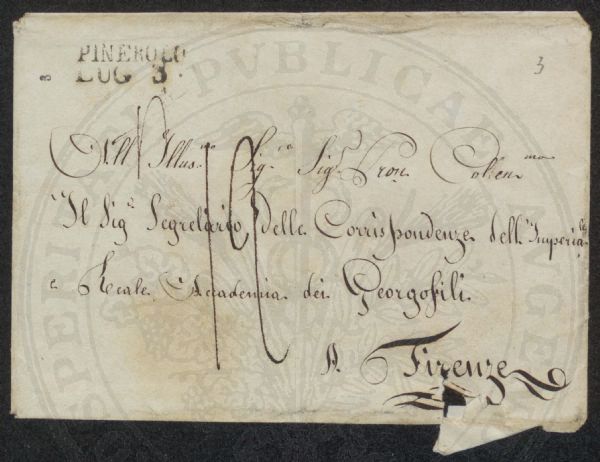 PINEROLO
LUG 3
3
3
All' Illus.mo Sig.re Sig.r Pron. Colen.mo
Il Sig.r Segretario delle Corrispondenze dell' Imperiale
e Reale Accademia dei Georgofili
A Firenze